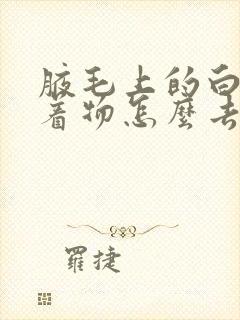 腋毛上的白
着物怎麼去
羅捷